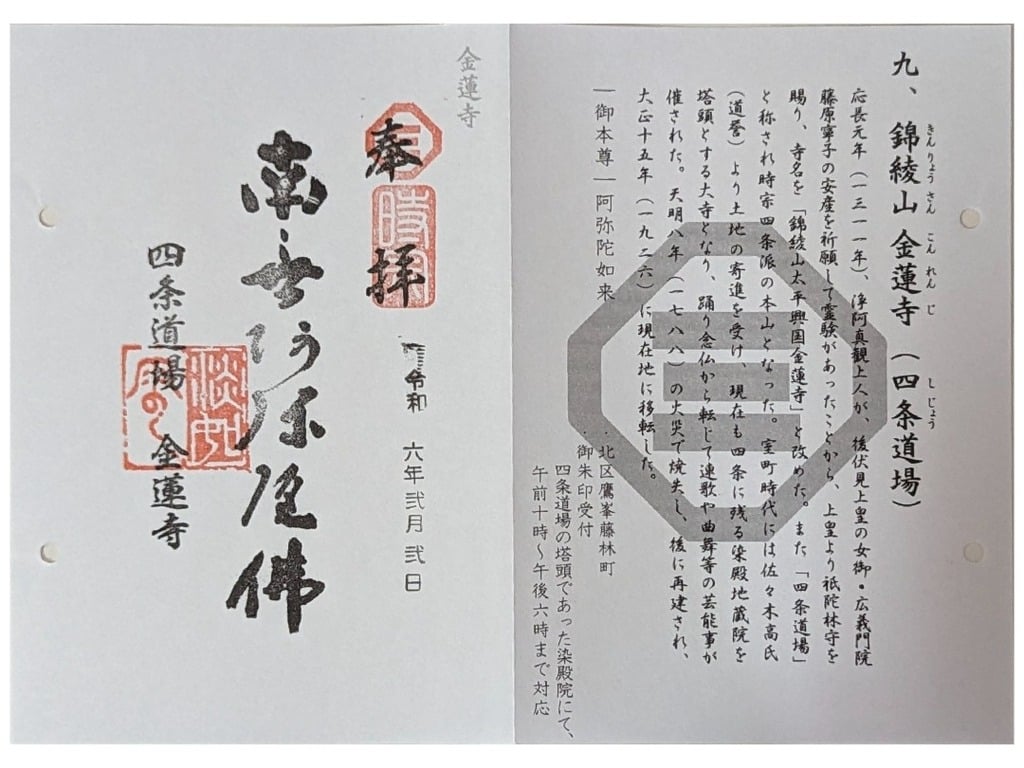 九、錦綾山 金蓮寺(四条道場)
きんりょうさん こんれんじ しじょう
応長元年(一三一一年)、浄阿真観上人が、後伏見上皇の女御・広義門院
藤原寧子の安産を祈願して霊験があったことから、上皇より祇陀林寺を
賜り、寺名を「錦綾山太平興国金蓮寺」と改めた。また「四条道場」
と称され時宗四条派の本山となった。室町時代には佐々木高氏
(道誉)より土地の寄進を受け、現在も四条に残る染殿地蔵院を
塔頭とする大寺となり、踊り念仏から転じて連歌や曲舞等の芸能事が
催された。天明八年(一七八八)の火災で焼失し、後に再建され、
大正十五年(一九二六)に現在地に移転した。
―御本尊―阿弥陀如来
・北区鷹峯藤林町
・御朱印受付
四条道場の塔頭であった染殿院にて、
午前十時~午後六時まで対応
金蓮寺
奉拝
時宗
令和 六年弐月弐日
南無阿弥陀佛
四条道場 金蓮寺